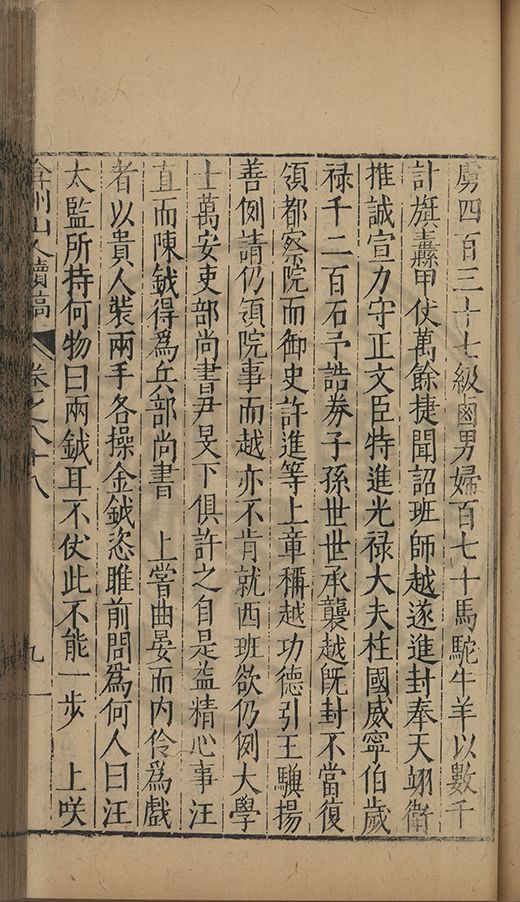 虜四百三十七級鹵男婦百七十馬駝牛羊以數千
計旗纛甲仗萬餘捷聞詔班師越遂進封奉天翊衛
推誠宣力守正文臣特進光禄大夫柱國威寧伯歲
禄千二百石予誥券子孫世世承襲越旣封不當復
領都察院而御史許進等上章稱越功德引王驥楊
善例請仍領院事而越亦不肯就西班欲仍例大學
士萬安吏部尚書尹旻下俱許之自是益精心事汪
直而陳鉞得爲兵部尚書　上嘗曲宴而内伶爲戲
者以貴人裝兩手各操金鉞恣睢前問爲何人曰汪
太監所持何物曰兩鉞耳不仗此不能一步　上咲
弇州山人續稿　卷之八十八　九